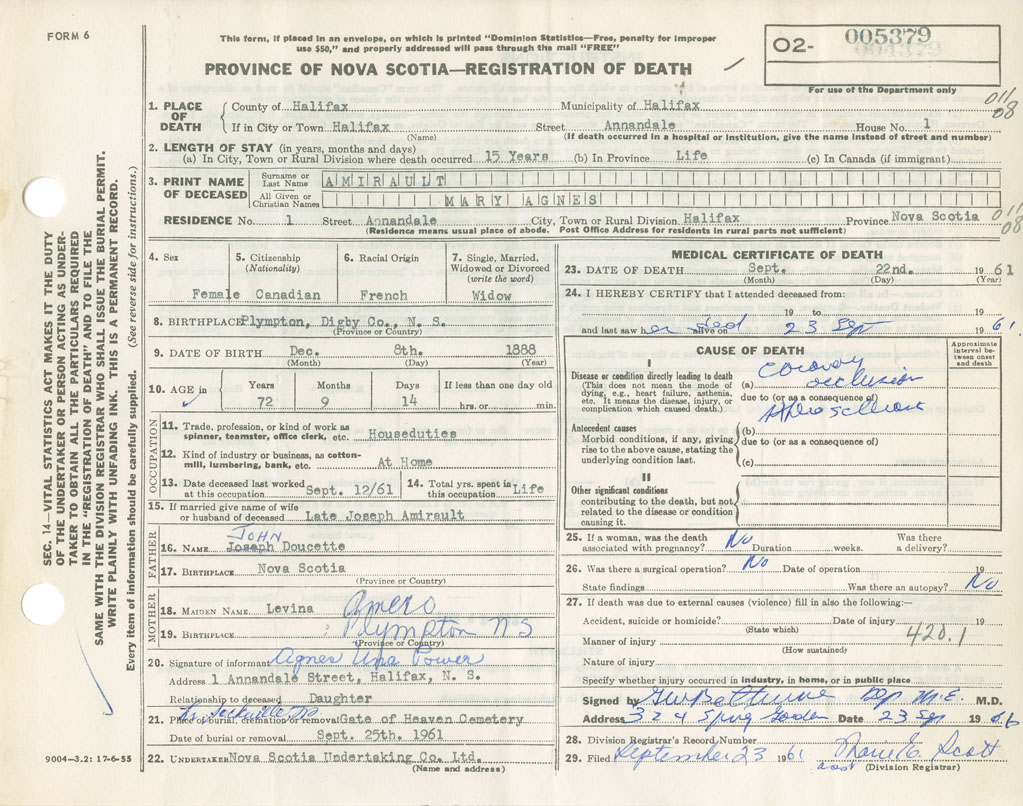 FORM 6
This form, if placed in an envelope, on which is printed "Dominion Statistics—Free, penalty for improper
use $50," and properly addressed will pass through the mail "FREE"
PROVINCE OF NOVA SCOTIA—REGISTRATION OF DEATH
02- 005379
For use of the Department only
011/08
SEC. 14—VITAL STATISTICS ACT MAKES IT THE DUTY
OF THE UNDERTAKER OR PERSON ACTING AS UNDER-
TAKER TO OBTAIN ALL THE PARTICULARS REQUIRED
IN THE "REGISTRATION OF DEATH" AND TO FILE THE
SAME WITH THE DIVISION REGISTRAR WHO SHALL ISSUE THE BURIAL PERMIT.
WRITE PLAINLY WITH UNFADING INK. THIS IS A PERMANENT RECORD.
Every item of information should be carefully supplied. (See reverse side for instructions.)
1. PLACE OF DEATH County of Halifax Municipality of Halifax
If in City or Town Halifax Street Annandale House No. 1
(Name) (If death occurred in a hospital or institution, give the name instead of street and number)
2. LENGTH OF STAY (in years, months and days)
(a) In City, Town or Rural Division where death occurred 15 Years (b) In Province Life (c) In Canada (if immigrant)
3. PRINT NAME OF DECEASED Surname or Last Name AMIRAULT
All Given or Christian Names MARY AGNES
RESIDENCE No. 1 Street Annandale City, Town or Rural Division Halifax Province Nova Scotia 011/08
(Residence means usual place of abode. Post Office Address for residents in rural parts not sufficient)
4. Sex Female
5. Citizenship (Nationality) Canadian
6. Racial Origin French
7. Single, Married, Widowed or Divorced (write the word) Widow
8. BIRTHPLACE Plympton, Digby Co., N. S.
(Province or Country)
9. DATE OF BIRTH Dec. 8th. 1888
(Month) (Day) (Year)
10. AGE in Years Months Days If less than one day old
72 9 14 hrs. or min.
OCCUPATION
11. Trade, profession, or kind of work as
spinner, teamster, office clerk, etc. Houseduties
12. Kind of industry or business, as cotton-
mill, lumbering, bank, etc. At Home
13. Date deceased last worked at this occupation Sept. 12/61
14. Total yrs. spent in this occupation Life
15. If married give name of wife
or husband of deceased Late Joseph Amirault
FATHER
JOHN
16. NAME Joseph Doucette
17. BIRTHPLACE Nova Scotia
(Province or Country)
MOTHER
18. MAIDEN NAME Levina Amero
19. BIRTHPLACE Plympton N S
(Province or Country)
20. Signature of informant Agnes Una Power
Address 1 Annandale Street, Halifax, N. S.
Relationship to deceased Daughter
21. Place of burial, cremation or removal Gate of Heaven Cemetery
Date of burial or removal Sept. 25th. 1961
22. UNDERTAKER Nova Scotia Undertaking Co. Ltd.
(Name and address)
9004—3.2: 17-6-55
MEDICAL CERTIFICATE OF DEATH
23. DATE OF DEATH Sept. 22nd. 1961
(Month) (Day) (Year)
24. I HEREBY CERTIFY that I attended deceased from:
19 to 19
and last saw her alive on dead 23 Sept 1961.
CAUSE OF DEATH
Approximate interval between onset and death
I
Disease or condition directly leading to death
(This does not mean the mode of
dying, e.g., heart failure, asthenia,
etc. It means the disease, injury, or
complication which caused death.)
(a) Coronary occlusion
due to (or as a consequence of)
Antecedent causes
Morbid conditions, if any, giving
rise to the above cause, stating the
underlying condition last.
(b)
due to (or as a consequence of)
(c)
II
Other significant conditions
contributing to the death, but not
related to the disease or condition
causing it.
25. If a woman, was the death associated with pregnancy? No Duration weeks. Was there a delivery?
26. Was there a surgical operation? No Date of operation 19
State findings Was there an autopsy? No
27. If death was due to external causes (violence) fill in also the following:—
Accident, suicide or homicide? Date of injury 19
(State which)
Manner of injury 420.1
(How sustained)
Nature of injury
Specify whether injury occurred in industry, in home, or in public place
Signed by M.E. M.D.
Address 324 Spring Garden Date 23 Sep 19
28. Division Registrar's Record Number
29. Filed September 23 1961 Scott
(Division Registrar)